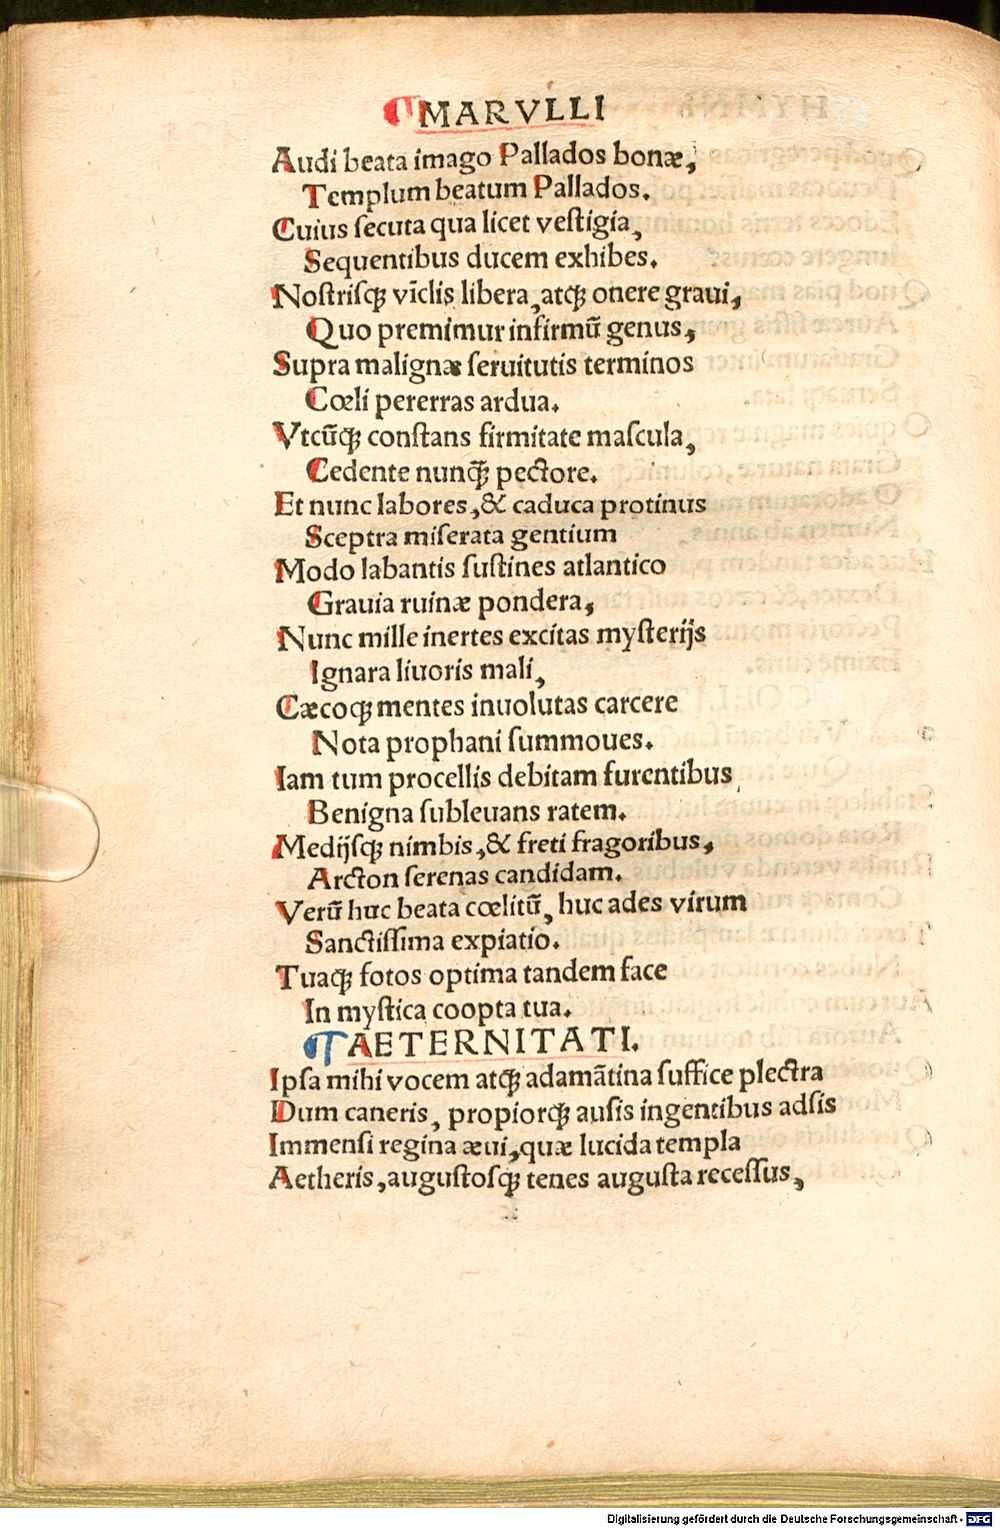 MARVLLI
Audi beata imago Pallados bonæ,
Templum beatum Pallados.
Cuius ſecuta qua licet veſtigia,
Sequentibus ducem exhibes.
Noſtriſqꝫ vīclis libera, atqꝫ onere graui,
Quo premimur infirmū genus,
Supra malignæ ſeruitutis terminos
Cœli pererras ardua.
Vtcūqꝫ conſtans firmitate maſcula,
Cedente nunq̄ꝫ pectore.
Et nunc labores, & caduca protinus
Sceptra miſerata gentium
Modo labantis ſuſtines atlantico
Grauia ruinæ pondera,
Nunc mille inertes excitas myſterijs
Ignara liuoris mali,
Cæcoqꝫ mentes inuolutas carcere
Nota prophani ſummoues.
Iam tum procellis debitam furentibus
Benigna ſubleuans ratem.
Medijſqꝫ nimbis, & freti fragoribus,
Arcton ſerenas candidam.
Verū huc beata cœlitū, huc ades virum
Sanctiſſima expiatio.
Tuaqꝫ fotos optima tandem face
In myſtica coopta tua.
AETERNITATI.
Ipſa mihi vocem atqꝫ adamātina ſuffice plectra
Dum caneris, propiorqꝫ auſis ingentibus adſis
Immenſi regina æui, quæ lucida templa
Aetheris, auguſtoſqꝫ tenes auguſta receſſus,
Digitalisierung gefördert durch die Deutsche Forschungsgemeinschaft - DFG